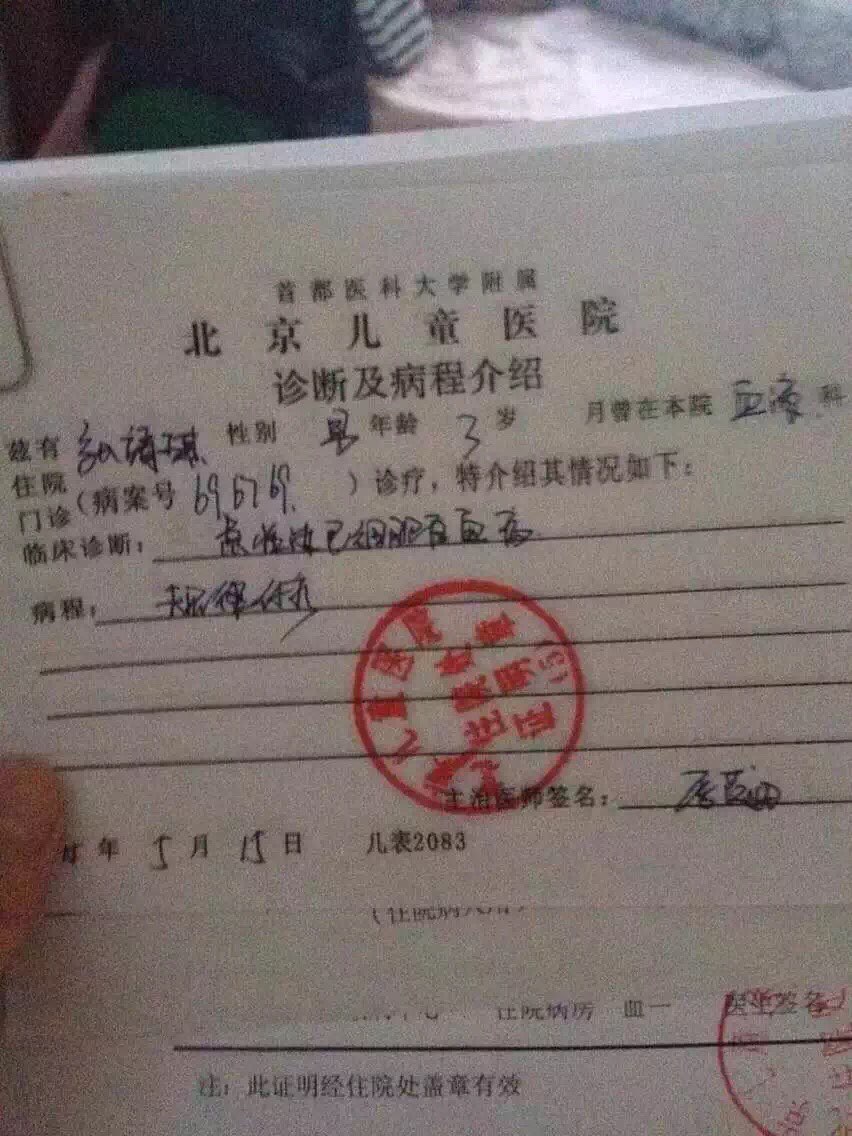 首都医科大学附属
北京儿童医院
诊断及病程介绍
兹有 性别 男 年龄 3 岁 月曾在本院 血液 科
住院
门诊(病案号 696769. )诊疗，特介绍其情况如下：
临床诊断： 急性淋巴细胞白血病
病程： 规律化疗
儿童医院
住院
证明
(5)
主治医师签名：
年 5 月 15 日 儿表2083
(住院病人用)
住院病房 血一 医生签名
注：此证明经住院处盖章有效